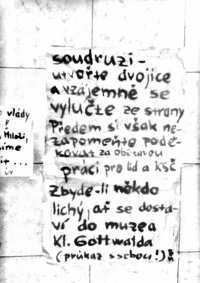 soudruzi -
utvořte dvojice
a vzájemně se
vylučte ze strany
Předem si však ne-
zapomeňte podě-
kovat za obětavou
práci pro lid a KSČ
Zbyde-li někdo
lichý, ať se dosta-
ví do muzea
Kl. Gottwalda
(průkaz s sebou!)!
vlády